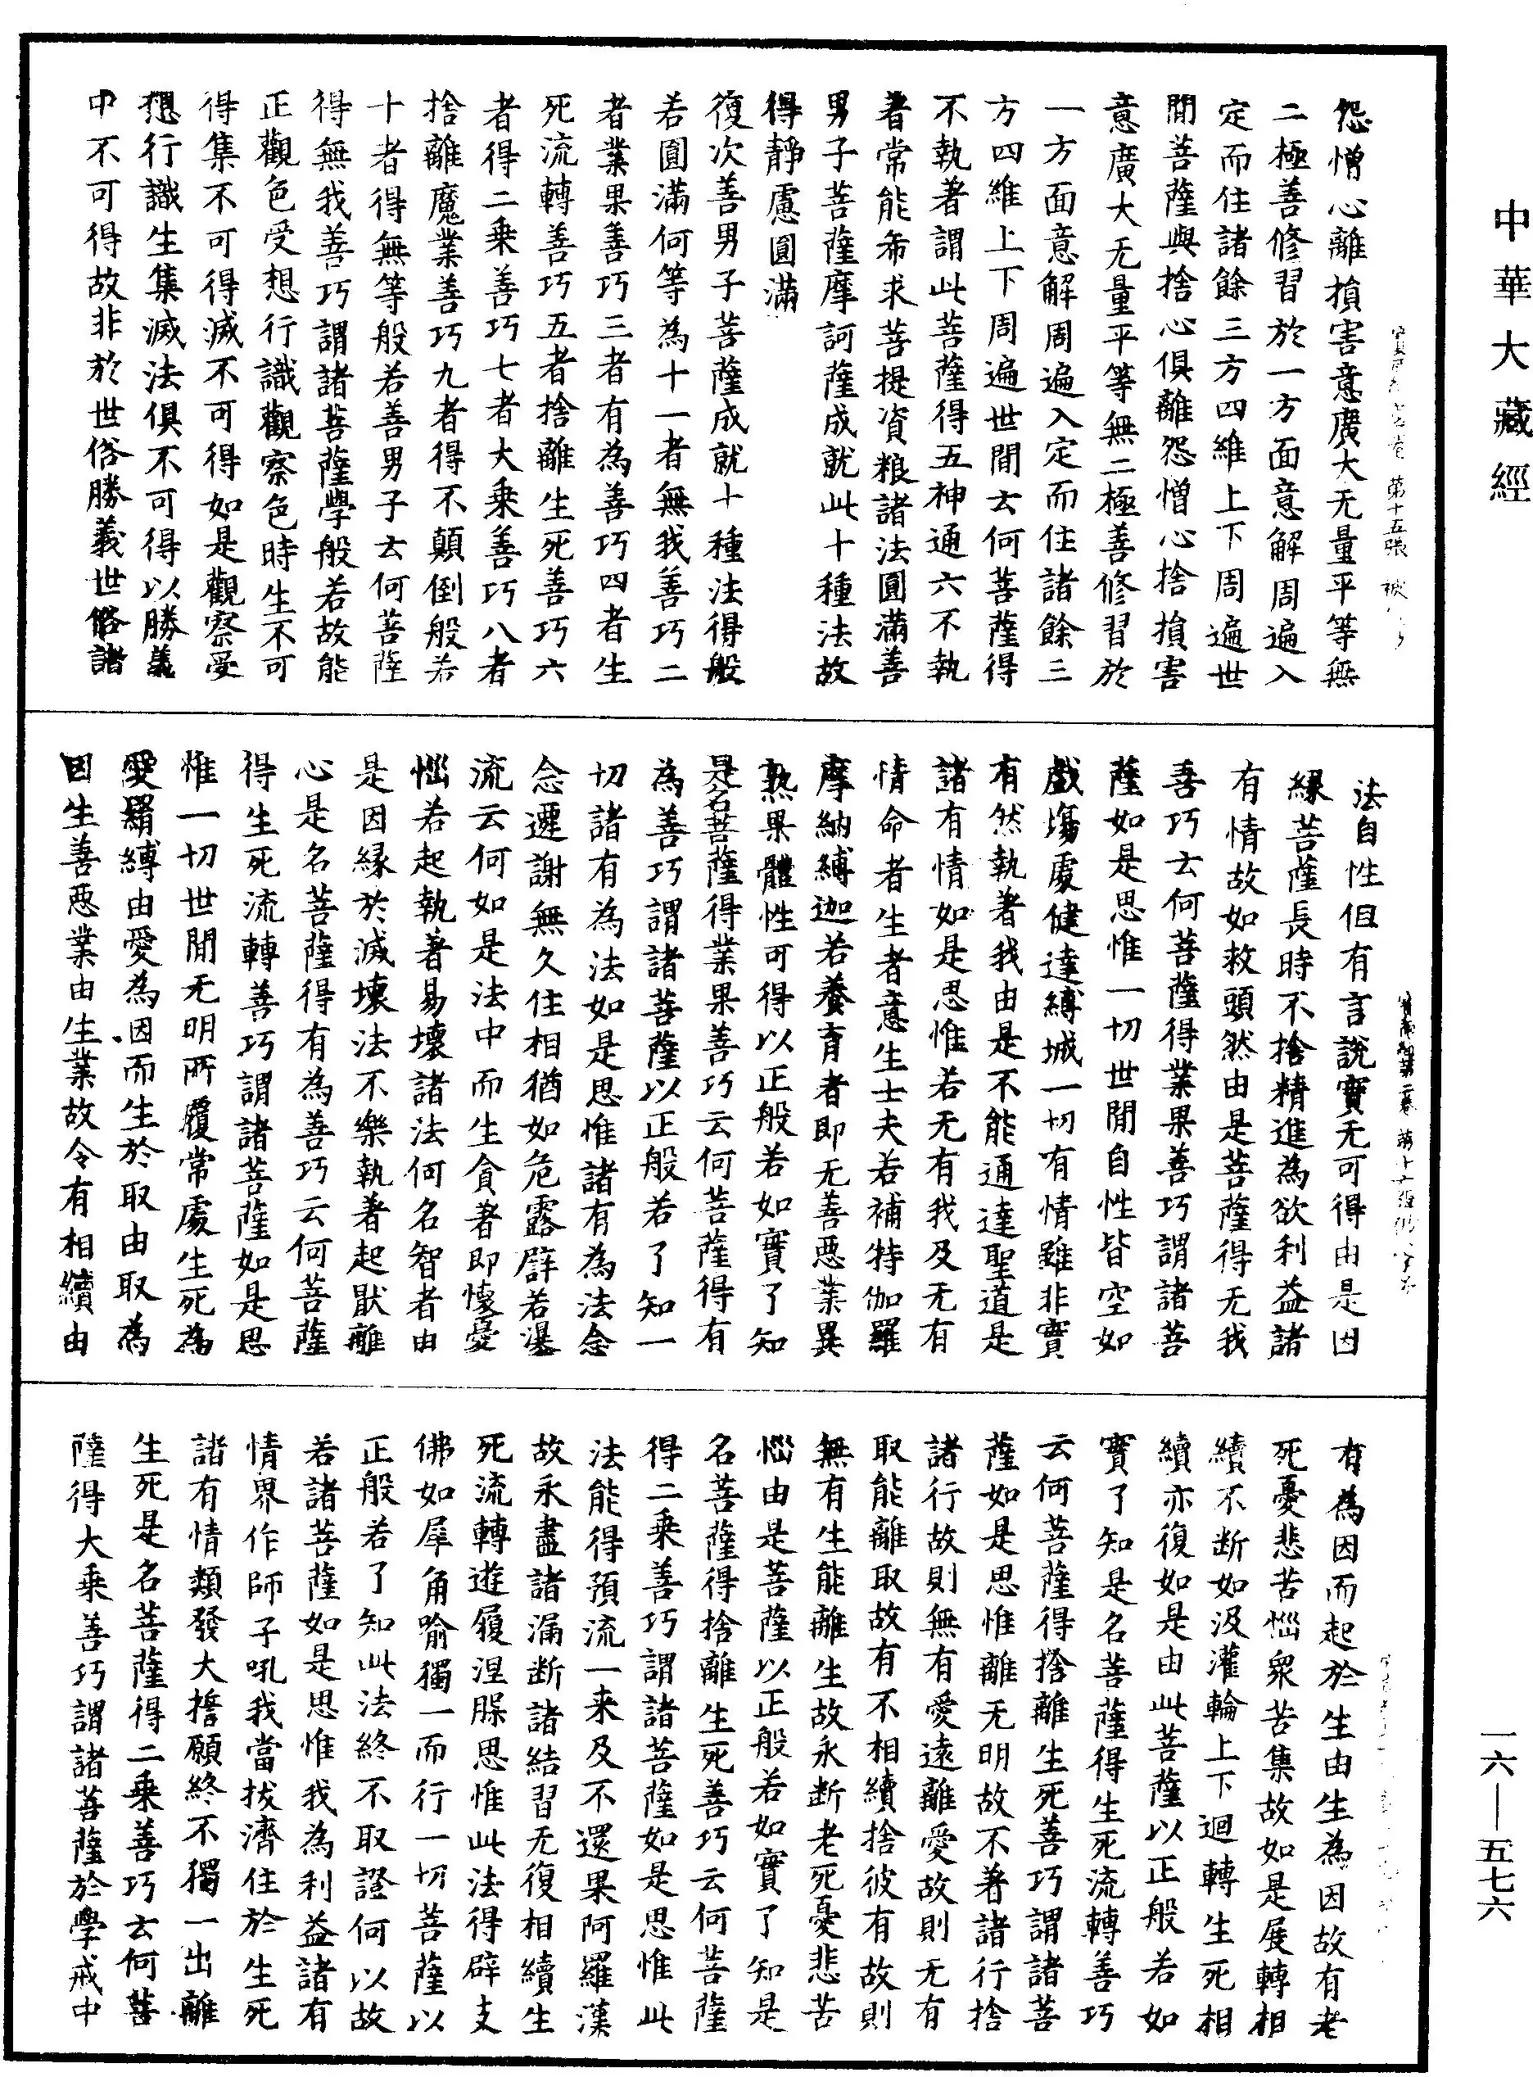 中華大藏經
怨憎心離損害意廣大无量平等無
二極善修習於一方面意解周遍入
定而住諸餘三方四維上下周遍世
間菩薩與捨心俱離怨憎心捨損害
意廣大无量平等無二極善修習於
一方面意解周遍入定而住諸餘三
方四維上下周遍世間云何菩薩得
不執著謂此菩薩得五神通六不執
著常能希求菩提資粮諸法圓滿善
男子菩薩摩訶薩成就此十種法故
得靜慮圓滿
復次善男子菩薩成就十種法得般
若圓滿何等為十一者無我善巧二
者業果善巧三者有為善巧四者生
死流轉善巧五者捨離生死善巧六
者得二乘善巧七者大乘善巧八者
捨離魔業善巧九者得不顛倒般若
十者得無等般若善男子云何菩薩
得無我善巧謂諸菩薩學般若故能
正觀色受想行識觀察色時生不可
得集不可得滅不可得如是觀察受
想行識生集滅法俱不可得以勝義
中不可得故非於世俗勝義世俗諸
第十五張
法自性但有言說實无可得由是因
緣菩薩長時不捨精進為欲利益諸
有情故如救頭然由是菩薩得无我
善巧云何菩薩得業果善巧謂諸菩
薩如是思惟一切世間自性皆空如
戲塲處健達縛城一切有情雖非實
有然執著我由是不能通達聖道是
諸有情如是思惟若无有我及无有
情命者生者意生士夫若補特伽羅
摩納縛迦若養育者即无善惡業異
熟果體性可得以正般若如實了知
是名菩薩得業果善巧云何菩薩得有
為善巧謂諸菩薩以正般若了知一
切諸有為法如是思惟諸有為法念
念遷謝無久住相猶如危露辟若瀑
流云何如是法中而生貪著即懷憂
惱若起執著易壞諸法何名智者由
是因緣於滅壞法不樂執著起猒離
心是名菩薩得有為善巧云何菩薩
得生死流轉善巧謂諸菩薩如是思
惟一切世間无明所覆常處生死為
愛羂縛由愛為因而生於取由取為
因生善惡業由生業故令有相續由
有為因而起於生由生為因故有老
死憂悲苦惱衆苦集故如是展轉相
續不断如汲灌輪上下迴轉生死相
續亦復如是由此菩薩以正般若如
實了知是名菩薩得生死流轉善巧
云何菩薩得捨離生死善巧謂諸菩
薩如是思惟離无明故不著諸行捨
諸行故則無有愛遠離愛故則无有
取能離取故有不相續捨彼有故則
無有生能離生故永断老死憂悲苦
惱由是菩薩以正般若如實了知是
名菩薩得捨離生死善巧云何菩薩
得二乘善巧謂諸菩薩如是思惟此
法能得預流一来及不還果阿羅漢
故永盡諸漏断諸結習无復相續生
死流轉遊履涅槃思惟此法得辟支
佛如犀角喻獨一而行一切菩薩以
正般若了知此法終不取證何以故
若諸菩薩如是思惟我為利益諸有
情界作師子吼我當拔濟住於生死
諸有情類發大擔願終不獨一出離
生死是名菩薩得二乘善巧云何菩
薩得大乘善巧謂諸菩薩於學戒中
一六—五七六